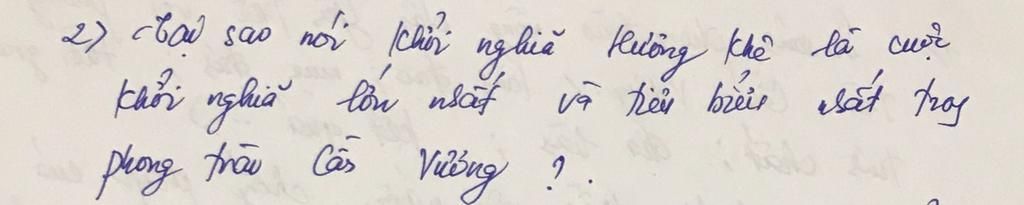 2) Tại sao nói khởi nghĩa Hương Khê là cuộc
khởi nghĩa lớn nhất và tiêu biểu nhất trong
phong trào Cần Vương ?.